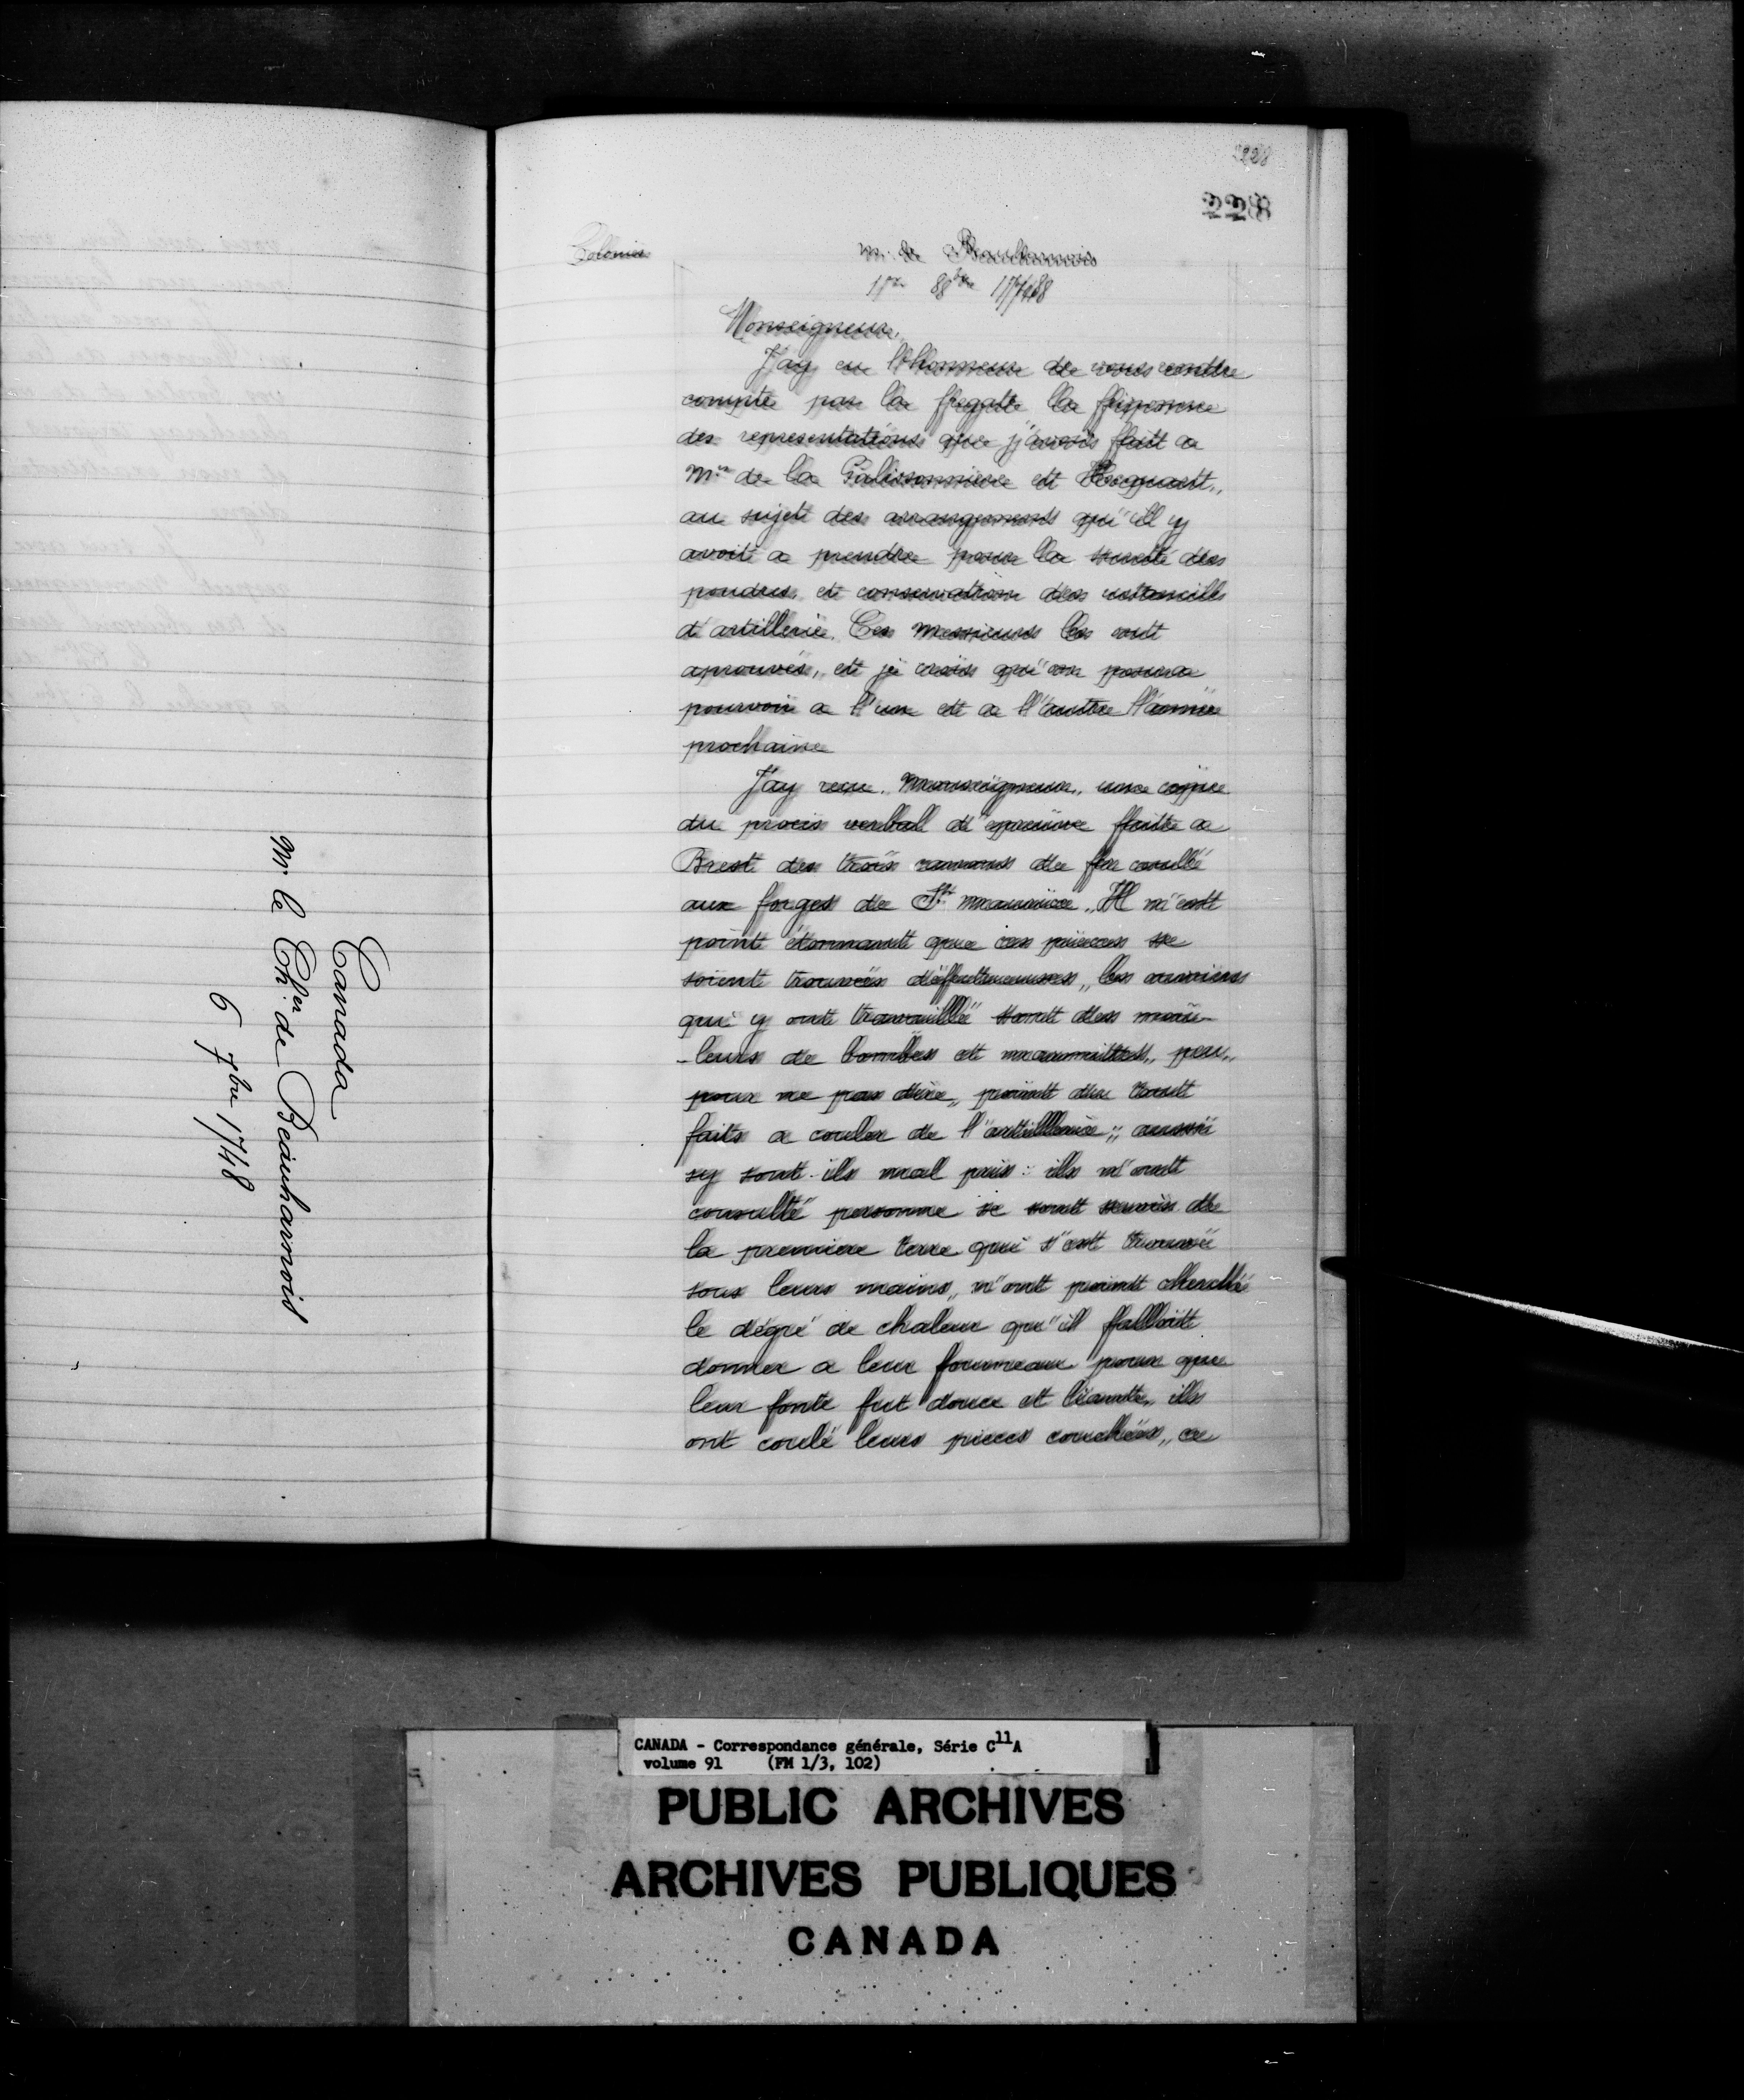 Canada
Mr le Cher de Beauharnois
6 7bre 1748
228
228
Colonies
m. de Beauharnois
1er 8bre 1748
Monseigneur,
J'ay eu l'honneur de vous rendre
compte par la fregate la friponne
des representations que j'avois fait a
Mrs de la Galissonniere et Hocquart,
au sujet des arrangements qu'il y
avoit a prendre pour la sureté des
poudres et conservation des ustencills
d'artillerie. Ces messieurs les ont
aprouvés, et je crois qu'on poura
pourvoir a l'un et a l'autre l'année
prochaine
J'ay receu, Monseigneur, une copie
du procis verbal d'epreuve faite a
Brest des trois canons de fer coulé
aux forges de St maurice. Il n'est
point étonnant que ces pieces se
soient trouvées déffectueuses, les ouvriers
qui y ont travaillé sont des mou-
-leurs de bombes et marmittes, peu,
pour ne pas dire, point du tout
faits a couler de l'artillerie; aussi
sy sont-ils mal pris: ils n'ont
consulté personne se sont servis de
la premiere terre qui s'est trouvée
sous leurs mains, n'ont point cherché
le dégré de chaleur qu'il falloit
donner a leur fourneau pour que
leur fonte fut douce et liante, ils
ont coulé leurs pieces couchées, ce
CANADA - Correspondance générale, Série C11A
volume 91 (FM 1/3, 102)
PUBLIC ARCHIVES
ARCHIVES PUBLIQUES
CANADA